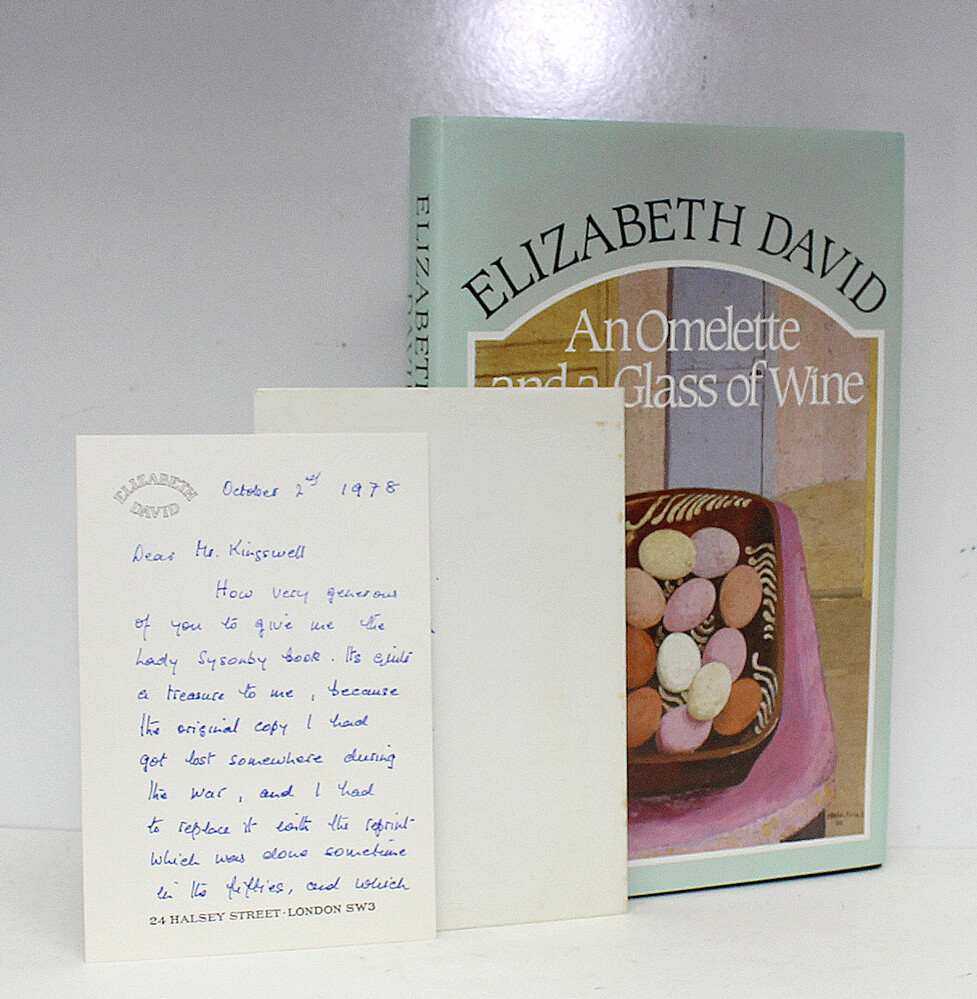 ELIZABETH DAVID
An Omelette
and a Glass of Wine
ELIZABETH
DAVID
ELIZABETH
DAVID
October 2nd 1978
Dear Mr. Kingswell
How very generous
of you to give me the
Lady Sysonby book. Its quite
a treasure to me, because
the original copy I had
got lost somewhere during
the war, and I had
to replace it with the reprint
which was done sometime
in the fifties, and which
24 HALSEY STREET · LONDON SW3